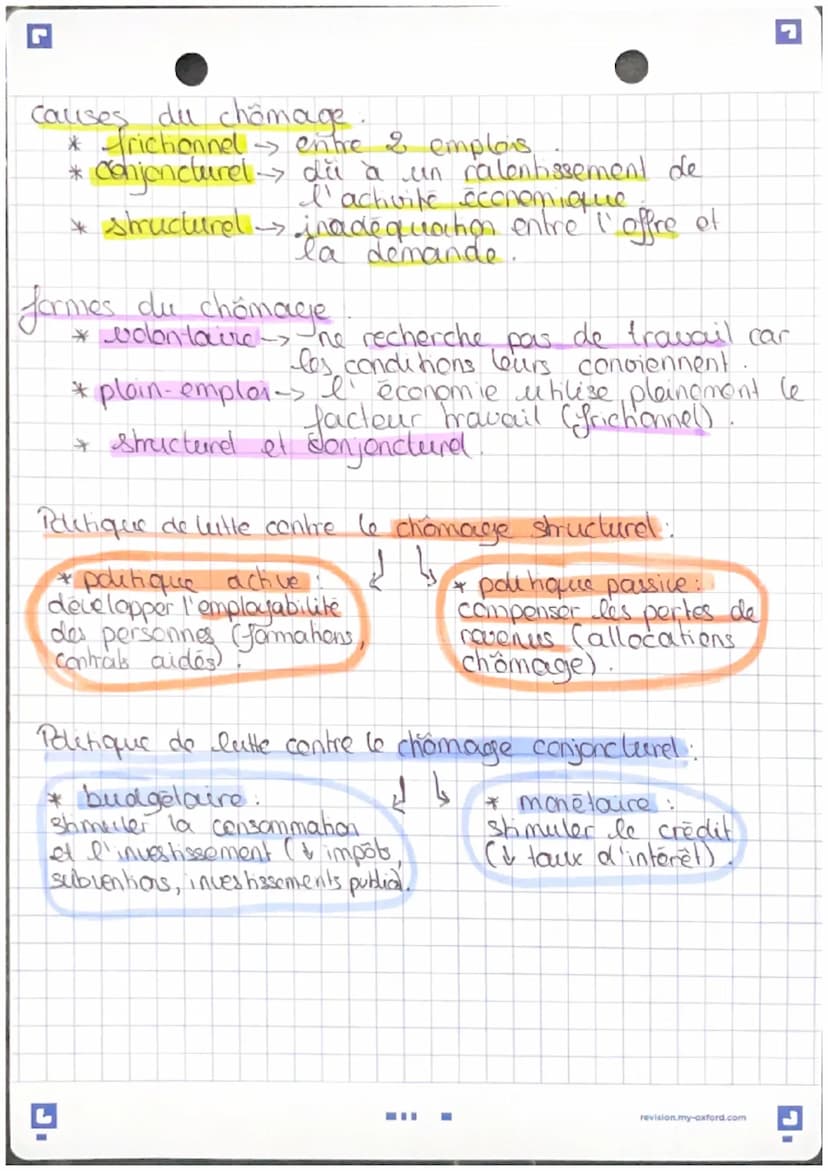 causes du chômage.
* frictionnel -> entre 2 emplois.
* conjoncturel -> dû à un ralentissement de
l'activité économique.
* structurel -> inadéquation entre l'offre et
la demande.
formes du chômage.
* volontaire -> ne recherche pas de travail car
les conditions leurs conviennent.
* plein-emploi -> l'économie utilise pleinement le
facteur travail (frictionnel).
* structurel et conjoncturel.
Politique de lutte contre le chômage structurel :
* politique active :
développer l'employabilité
des personnes (formations,
contrats aidés).
* politique passive :
compenser les pertes de
revenus (allocations
chômage).
Politique de lutte contre le chômage conjoncturel :
* budgétaire :
stimuler la consommation
et l'investissement (↓ impôts,
subventions, investissements public).
* monétaire :
stimuler le crédit
(↓ taux d'intérêt).
revision.my-oxford.com